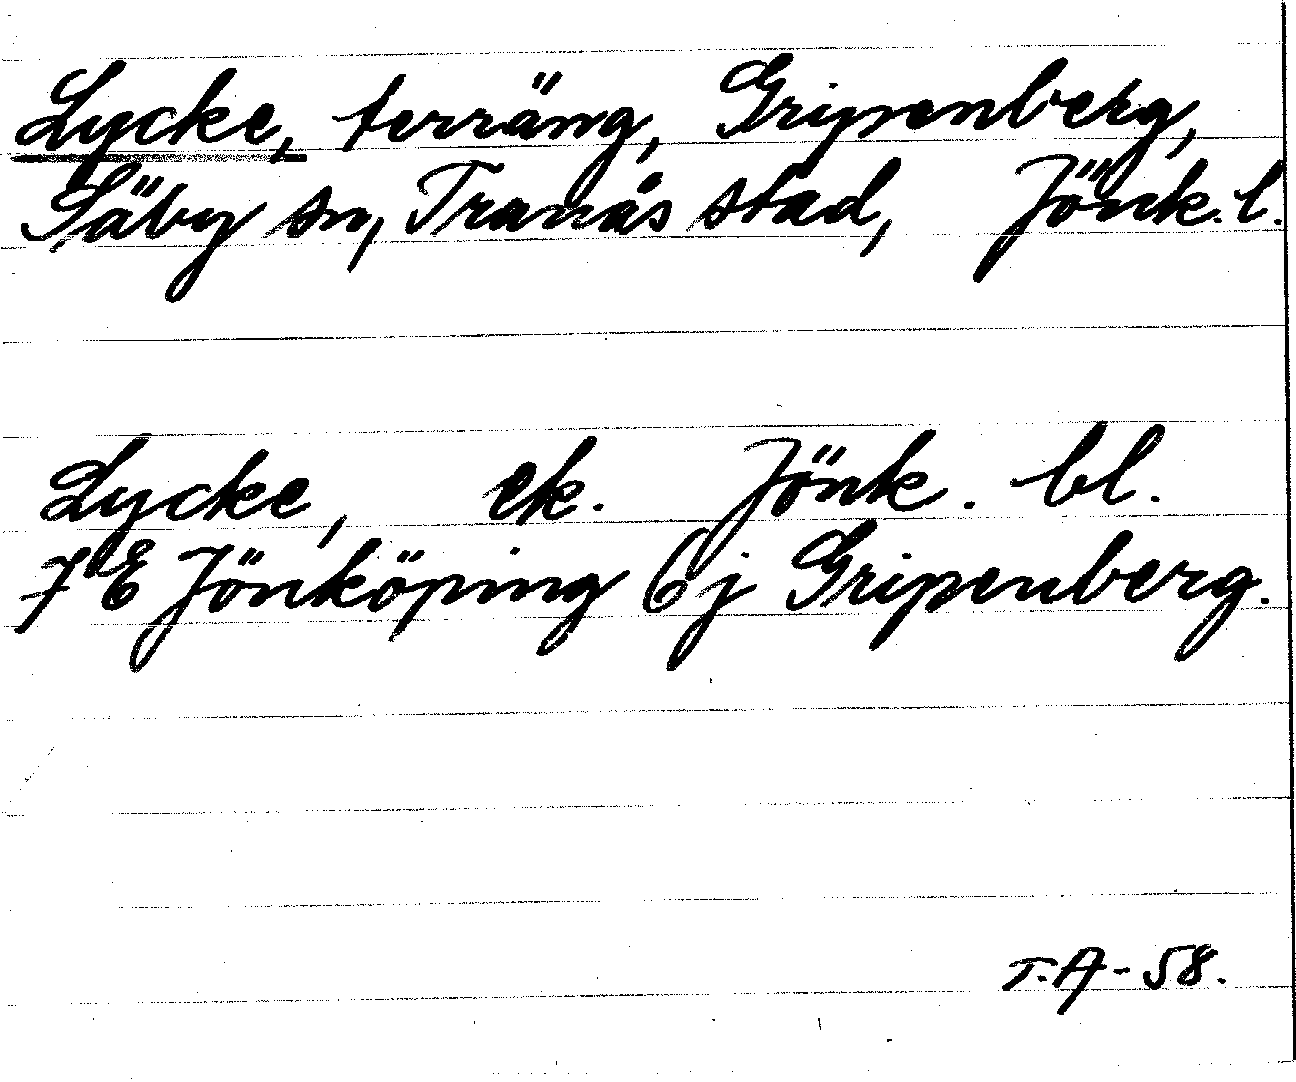 Lycke, terräng, Gripenberg,
Säby sn, Tranås stad, Jönk. l.
Lycke, ek. Jönk. bl.
7 E Jönköping 6j Gripenberg.
T.A-58.